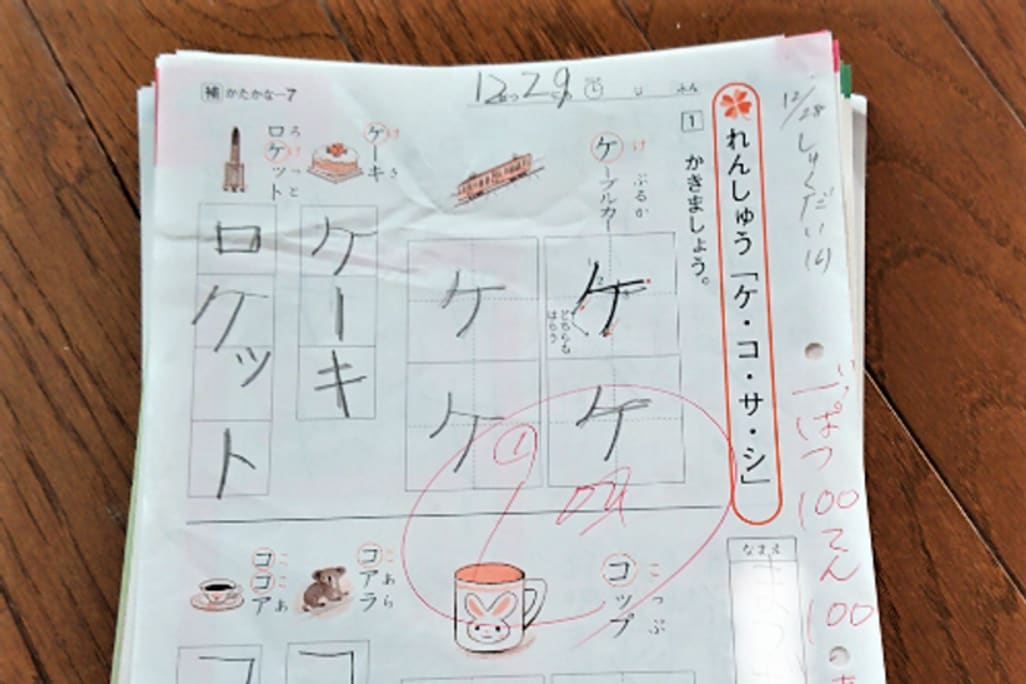 補 かたかなー7
12がつ29にち じ ふん
12/28 しゅくだい(4)
いっぱつ100てん 100
れんしゅう「ケ・コ・サ・シ」
1 かきましょう。
ケーブルカー
け ぶるか
ケ
ケ
どちらも
はらう
ケ
ケ
ケーキ
け き
ケーキ
ロケット
ろけっと
ロケット
なまえ
コップ
こっぷ
コアラ
こあら
コ
ココア
ここあ
コ